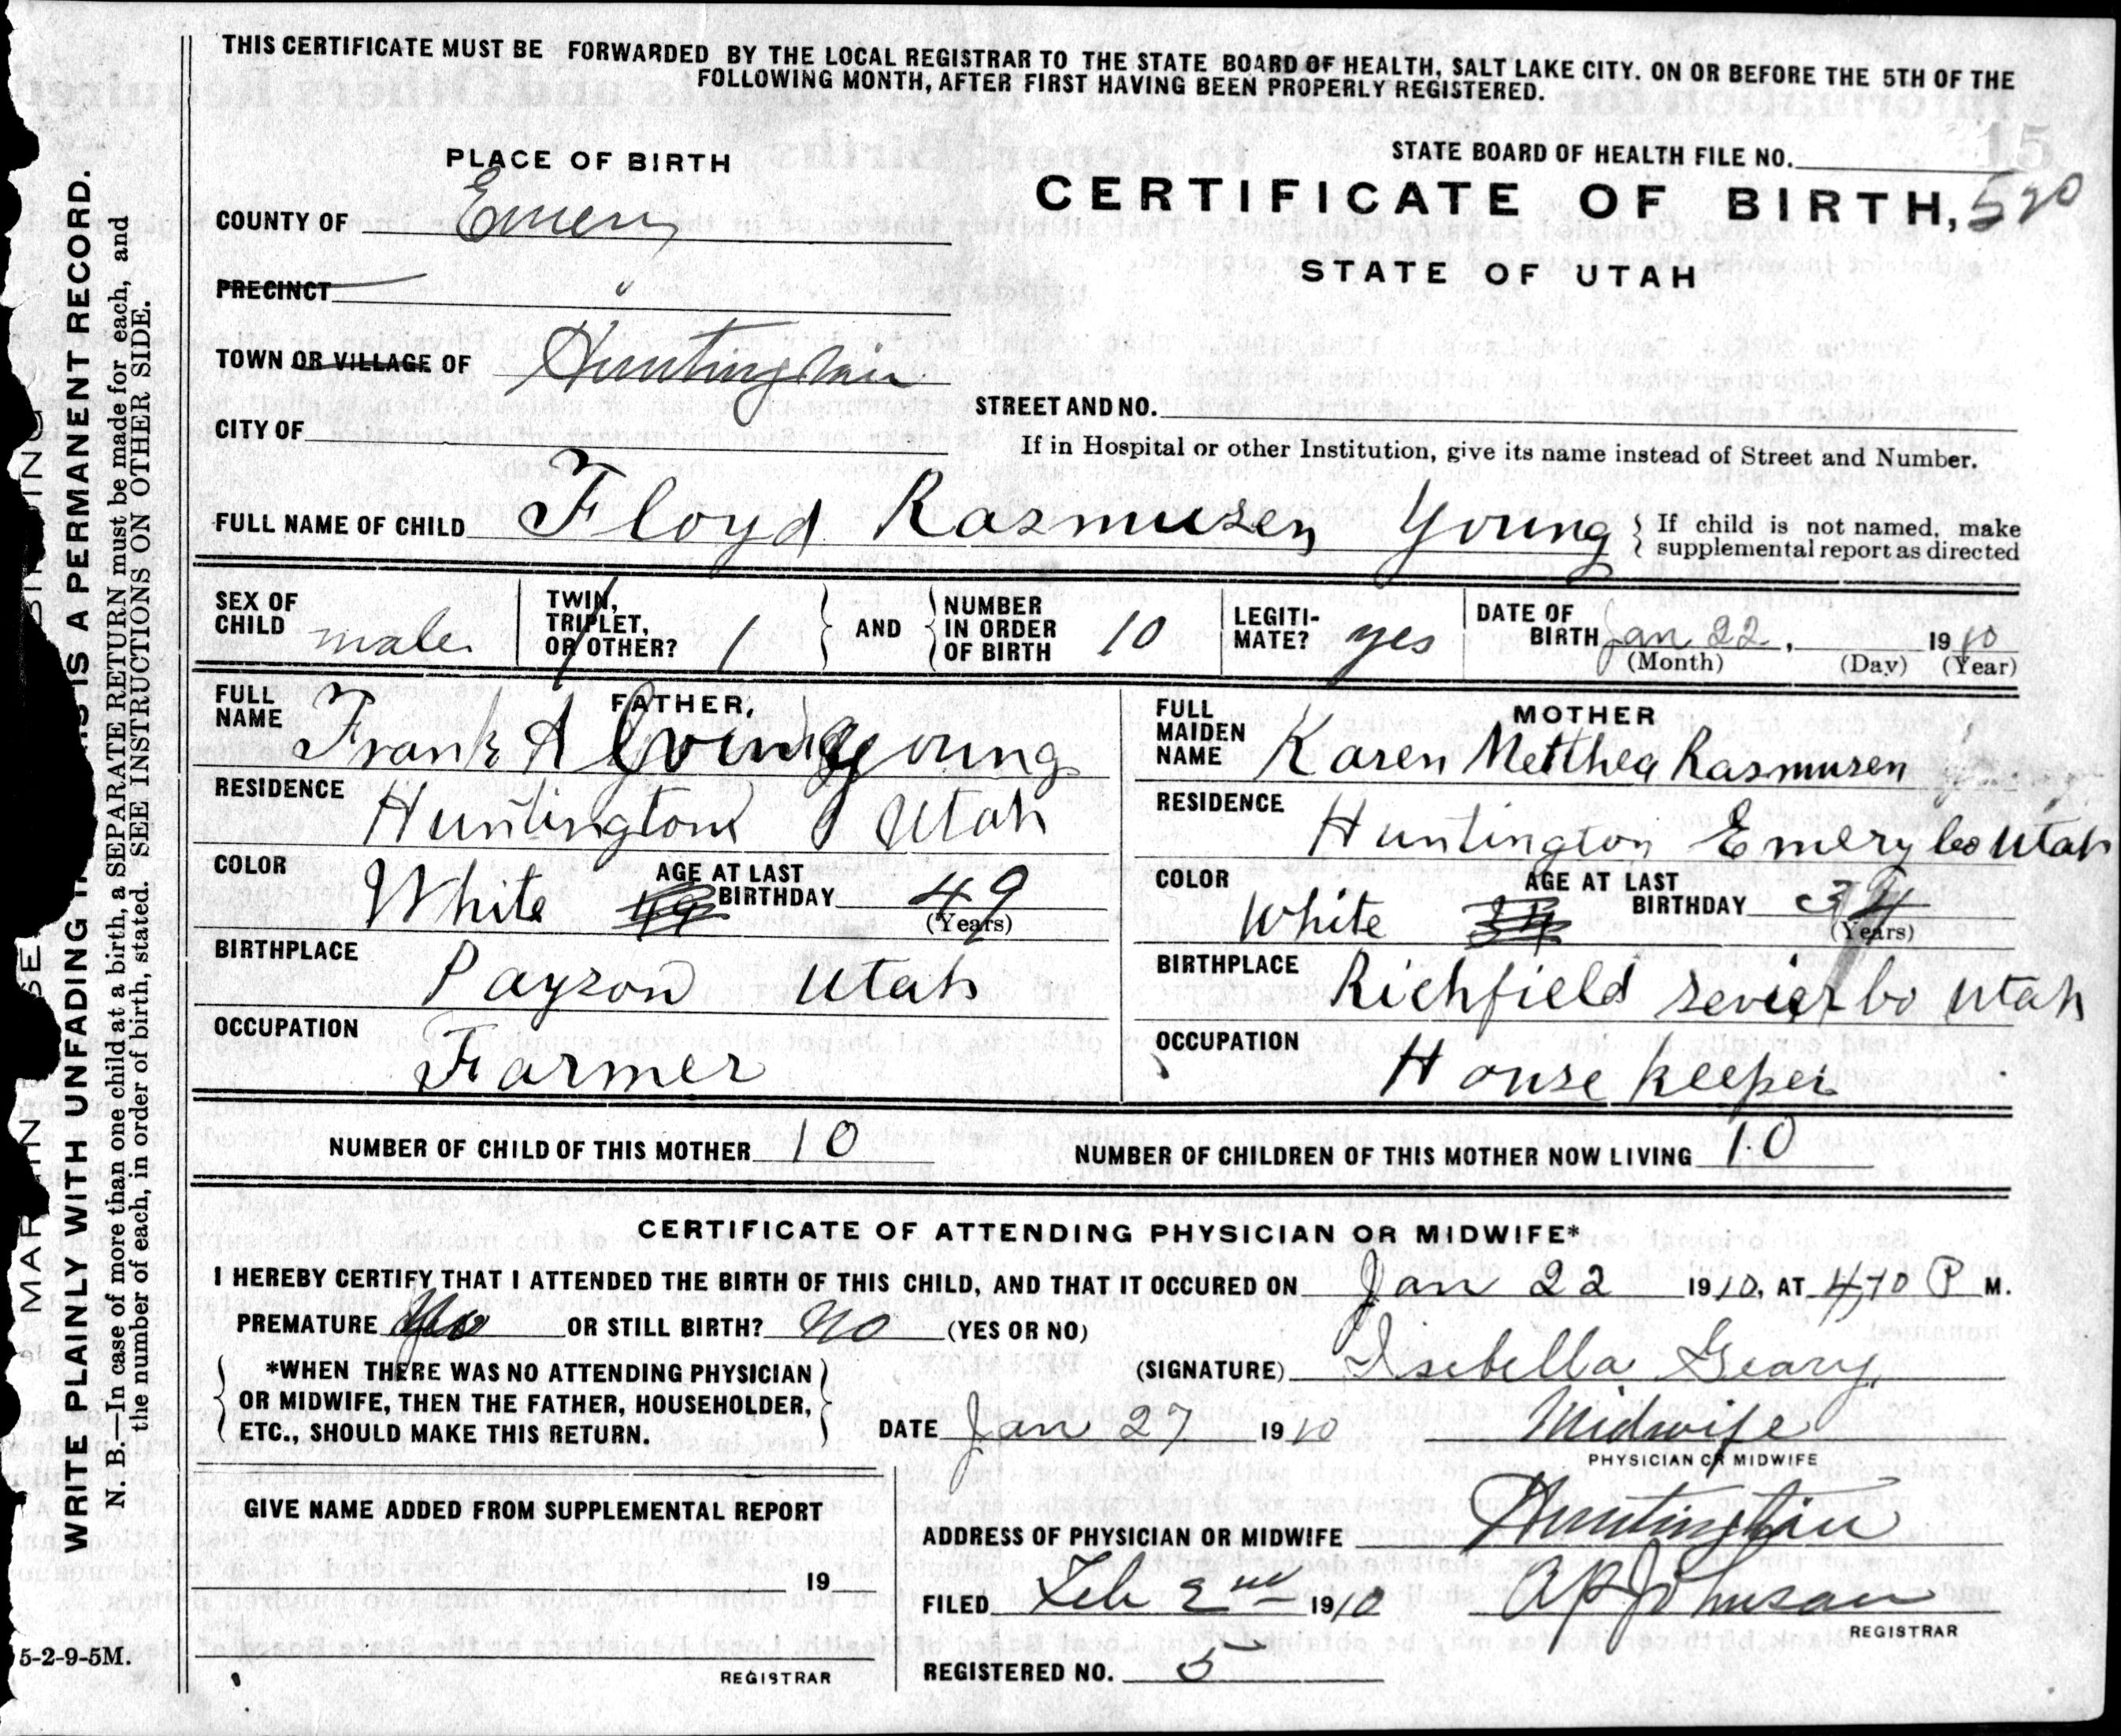 THIS CERTIFICATE MUST BE FORWARDED BY THE LOCAL REGISTRAR TO THE STATE BOARD OF HEALTH, SALT LAKE CITY, ON OR BEFORE THE 5TH OF THE
FOLLOWING MONTH, AFTER FIRST HAVING BEEN PROPERLY REGISTERED.
15
PLACE OF BIRTH
STATE BOARD OF HEALTH FILE NO.
COUNTY OF Emery
CERTIFICATE OF BIRTH, 520
PRECINCT "
STATE OF UTAH
TOWN OR VILLAGE OF Huntington
STREET AND NO.
CITY OF
If in Hospital or other Institution, give its name instead of Street and Number.
FULL NAME OF CHILD Floyd Rasmusen Young { If child is not named, make
supplemental report as directed
SEX OF CHILD male
TWIN, TRIPLET, OR OTHER? 1 } AND { NUMBER IN ORDER OF BIRTH 10
LEGITI-MATE? yes
DATE OF BIRTH Jan 22, 1910
(Month) (Day) (Year)
FATHER,
FULL NAME Frank A Young
MOTHER
FULL MAIDEN NAME Karen Metthea Rasmusen
RESIDENCE Huntington Utah
RESIDENCE Huntington Emery Co Utah
COLOR White 49 AGE AT LAST BIRTHDAY 49 (Years)
COLOR White 34 AGE AT LAST BIRTHDAY 34 (Years)
BIRTHPLACE Payson Utah
BIRTHPLACE Richfield Sevier Co Utah
OCCUPATION Farmer
OCCUPATION House keeper
NUMBER OF CHILD OF THIS MOTHER 10 NUMBER OF CHILDREN OF THIS MOTHER NOW LIVING 10
CERTIFICATE OF ATTENDING PHYSICIAN OR MIDWIFE*
I HEREBY CERTIFY THAT I ATTENDED THE BIRTH OF THIS CHILD, AND THAT IT OCCURED ON Jan 22 1910, AT 4,10 P M.
PREMATURE OR STILL BIRTH? no (YES OR NO)
*WHEN THERE WAS NO ATTENDING PHYSICIAN
OR MIDWIFE, THEN THE FATHER, HOUSEHOLDER,
ETC., SHOULD MAKE THIS RETURN.
(SIGNATURE) Isebella Geary
DATE Jan 27 1910 Midwife
PHYSICIAN OR MIDWIFE
GIVE NAME ADDED FROM SUPPLEMENTAL REPORT
19
REGISTRAR
ADDRESS OF PHYSICIAN OR MIDWIFE Huntington
FILED Feb 2nd 1910 A P Johnson
REGISTRAR
REGISTERED NO. 5
5-2-9-5M.
WRITE PLAINLY WITH UNFADING IS A PERMANENT RECORD.
N. B.—In case of more than one child at a birth, a SEPARATE RETURN must be made for each, and
the number of each, in order of birth, stated. SEE INSTRUCTIONS ON OTHER SIDE.